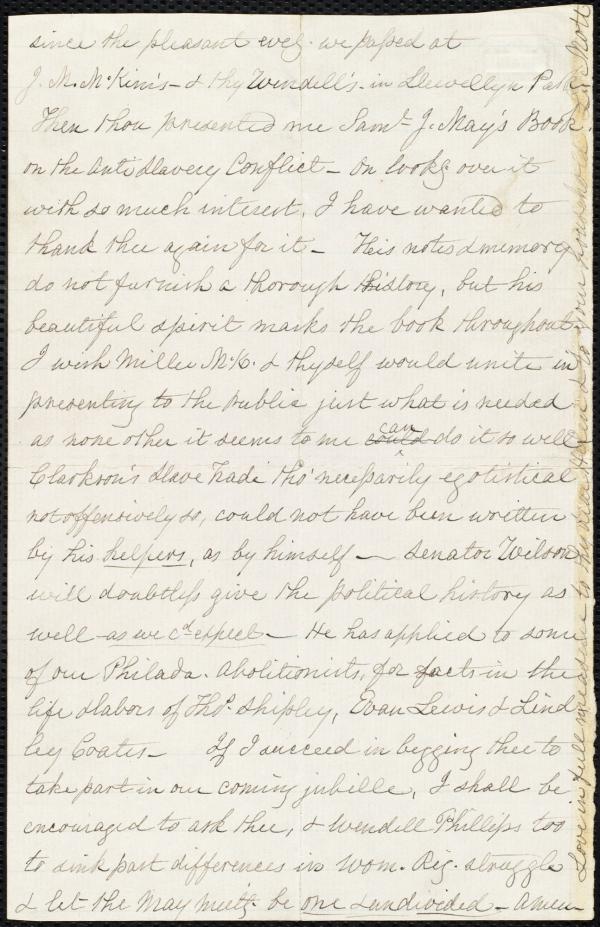 since the pleasant eveg. we passed at
J. M. McKim's - & thy Wendell's - in Llewellyn Park
Then thou presented me Saml. J. May's Book
on the Anti Slavery Conflict - On lookg. over it
with so much interest, I have wanted to
thank thee again for it - His notes & memory
do not furnish a thorough history, but his
beautiful spirit marks the book throughout
I wish Miller McK. & thyself would unite in
presenting to the public just what is needed
as none other it seems to me could can do it so well
Clarkson's Slave Trade tho' necessarily egotistical
not offensively so, could not have been written
by his helpers, as by himself - Senator Wilson
will doubtless give the political history as
well - as we cd. expect - He has applied to some
of our Philada. Abolitionists, for facts in the
life & labors of Thos. Shipley, Evan Lewis & Lind
ley Coates - If I succeed in begging thee to
take part in our coming jubille, I shall be
encouraged to ask thee, & Wendell Phillips too
to sink past differences in Wom. Rig. struggle
& let the May meetg. be one & undivided - Amen
Love in full measure to thy dear Helen & to your household L. Mott